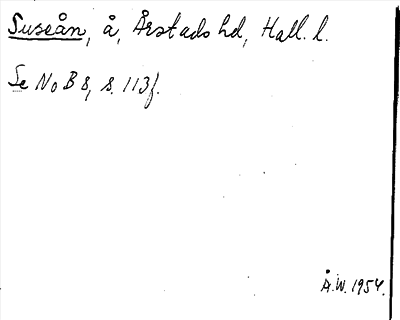 Suseån, å, Årstads hd, Hall. l.
Se NoB 8, s. 113f.
Å.W. 1954.